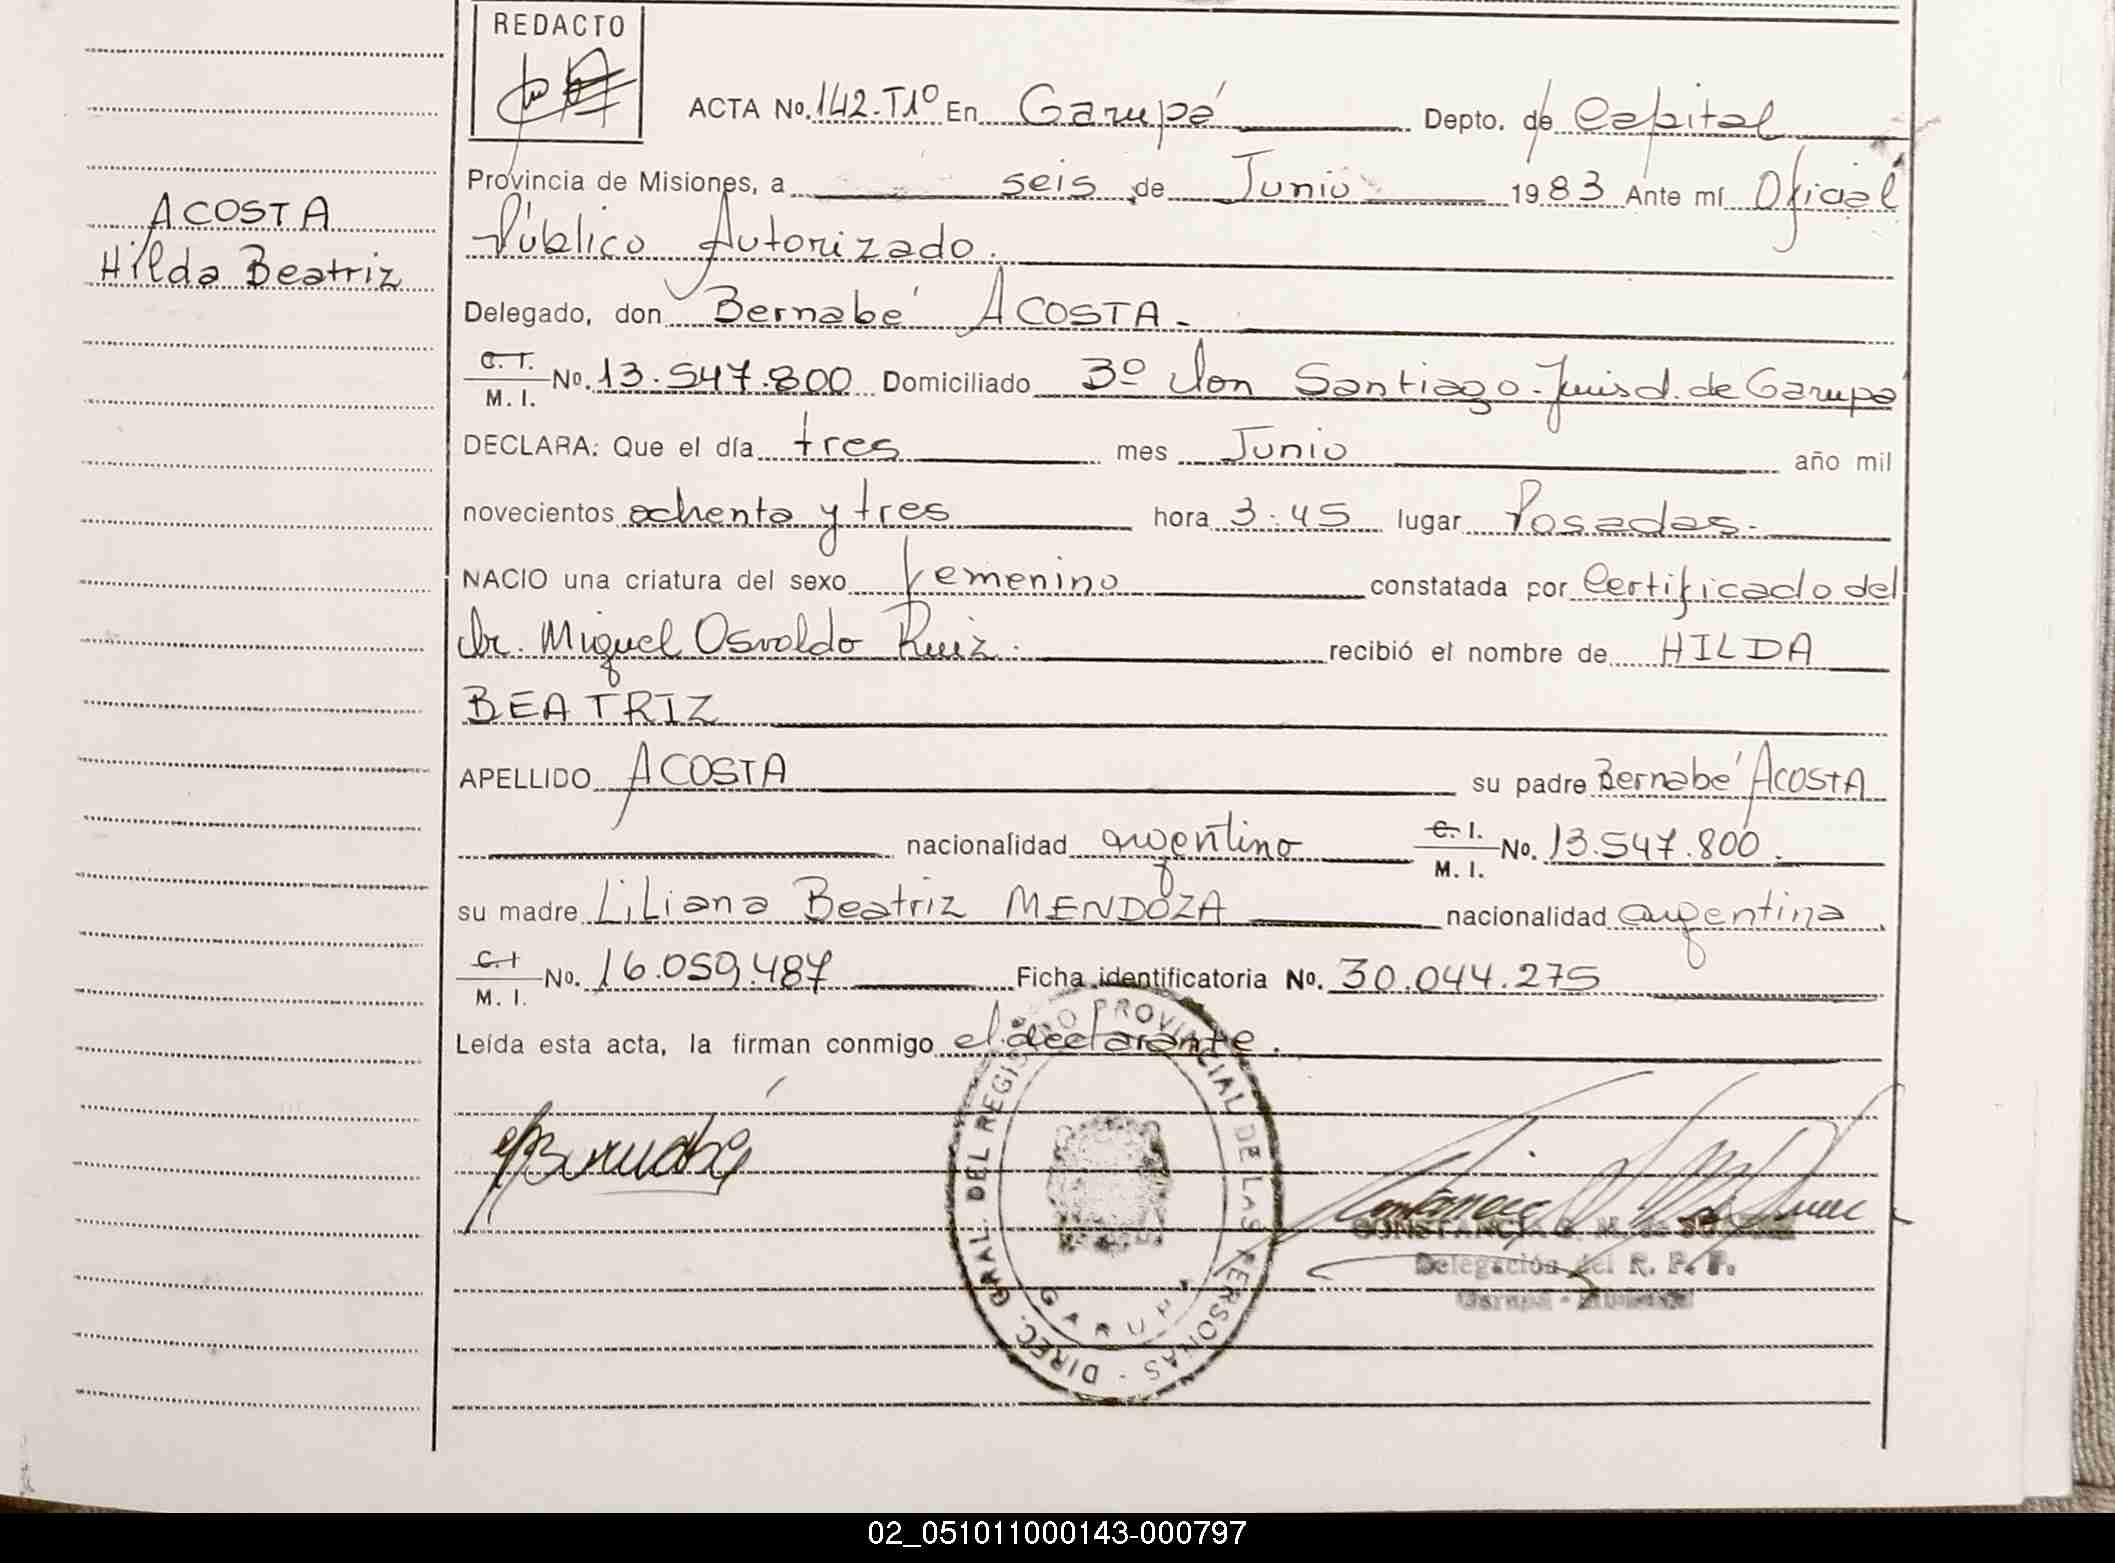 REDACTO
ACTA No. 142.T1º En Garupá Depto. de Capital
Provincia de Misiones, a seis de Junio 1983 Ante mí Oficial
Público Autorizado.
ACOSTA
Hilda Beatriz
Delegado, don Bernabé ACOSTA.
C. I.
M. I.
No. 13.547.800 Domiciliado 3º Don Santiago-Jurisd. de Garupá
DECLARA: Que el día tres mes Junio año mil
novecientos ochenta y tres hora 3:45 lugar Posadas.
NACIO una criatura del sexo femenino constatada por Certificado del
dr. Miguel Osvaldo Ruiz. recibió el nombre de HILDA
BEATRIZ
APELLIDO ACOSTA su padre Bernabé ACOSTA
nacionalidad argentino C. I.
M. I.
No. 13.547.800.
su madre Liliana Beatriz MENDOZA nacionalidad argentina
C. I
M. I.
No. 16.059.487 Ficha identificatoria No. 30.044.275
Leída esta acta, la firman conmigo el declarante.
DIREC. GRAL. DEL REGISTRO PROVINCIAL DE LAS PERSONAS
GARUPA
CONSTANCIA
Delegación del R. P. P.
Garupá - Misiones
02_051011000143-000797